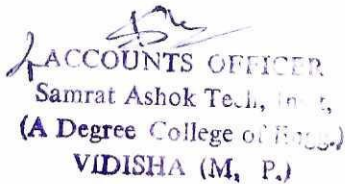 ACCOUNTS OFFICER
Samrat Ashok Tech,
(A Degree College of
VIDISHA (M, P.)